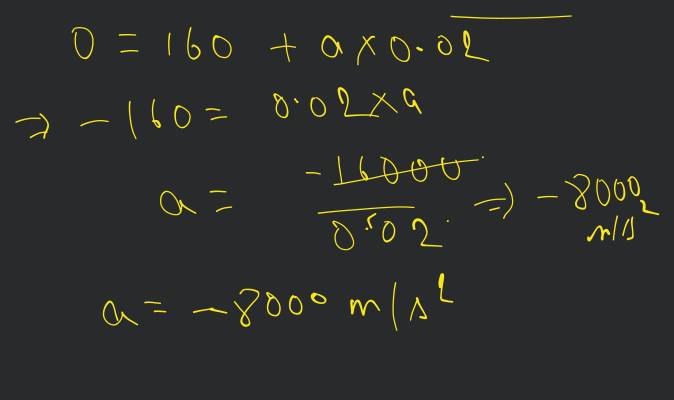 0 = 160 + a × 0.02
⇒ -160 = 0.02 × a
a = -16000 / 0.02 ⇒ -8000 m/s²
a = -8000 m/s²